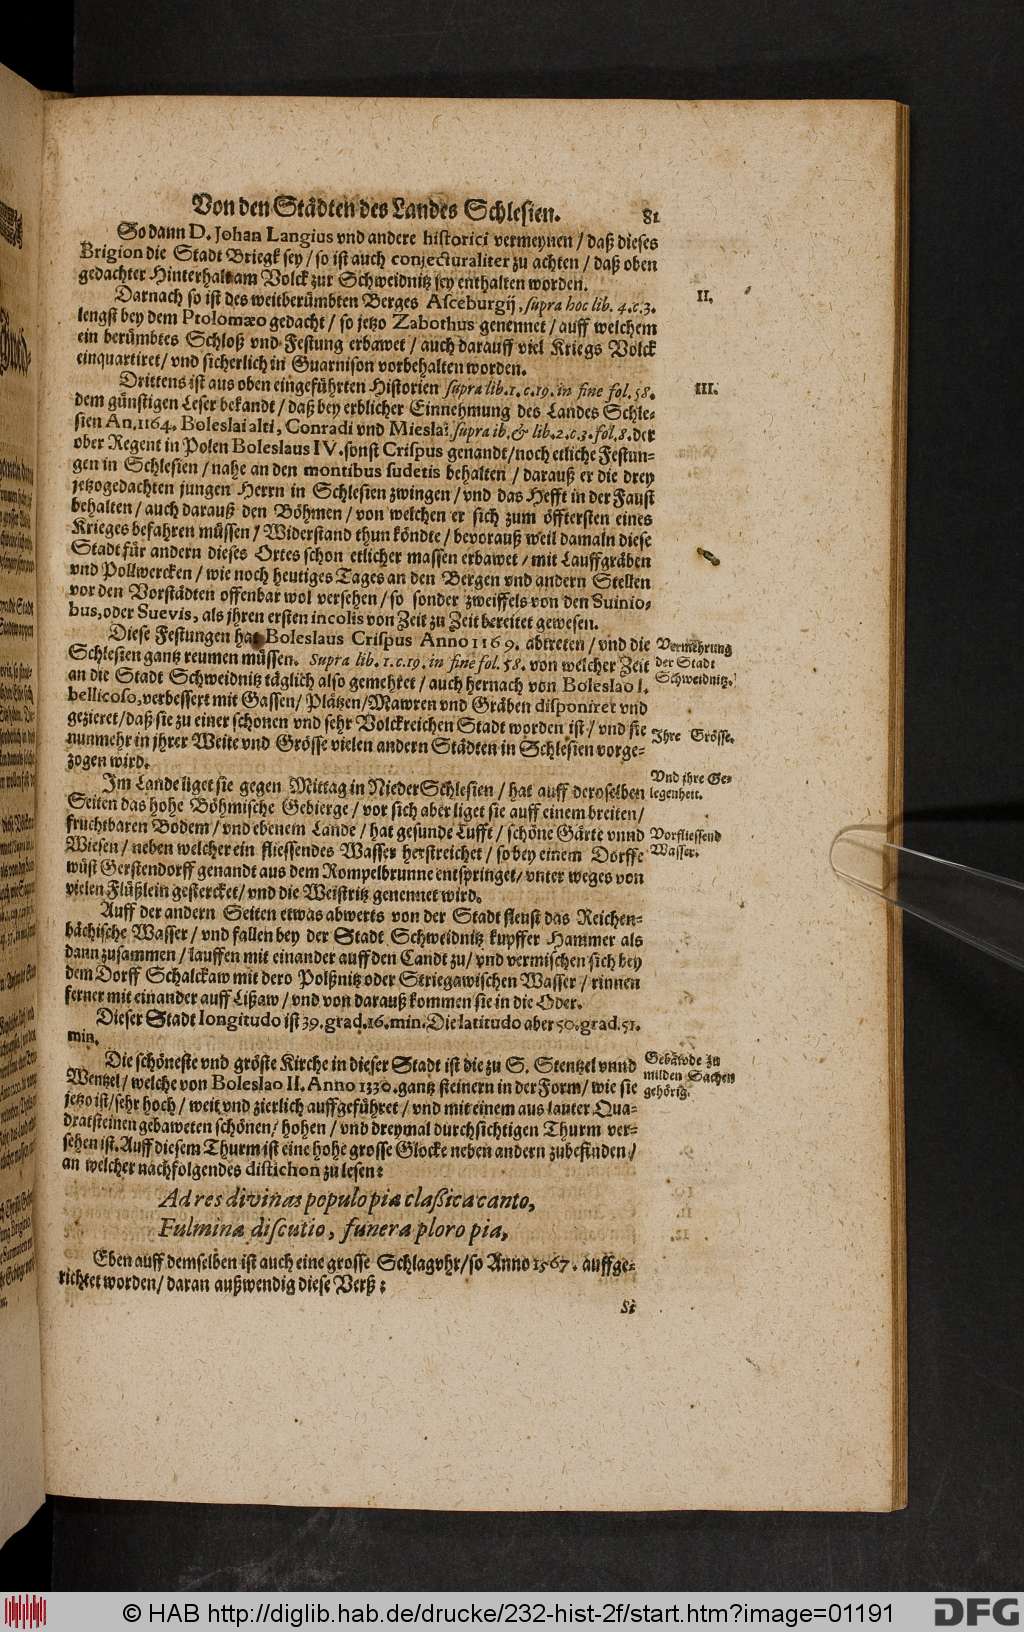 Von den Städten des Landes Schlesien. 81
So dann D. Johan Langius vnd andere historici vermeynen / daß dieses
Brigion die Stadt Briegk sey / so ist auch conjecturaliter zu achten / daß oben
gedachter Hinterhalt am Volck zur Schweidnitz sey enthalten worden.
II.
Darnach so ist des weitberümbten Berges Asceburgij, supra hoc lib. 4. c. 3.
lengst bey dem Ptolomæo gedacht / so jetzo Zabothus genennet / auff welchem
ein berümbtes Schloß vnd Festung erbawet / auch darauff viel Kriegs Volck
einquartiret / vnd sicherlich in Guarnison vorbehalten worden.
III.
Drittens ist aus oben eingeführten Historien supra lib. 1. c. 19. in fine fol. 58.
dem günstigen Leser bekandt / daß bey erblicher Einnehmung des Landes Schle-
sien An. 1164. Boleslai alti, Conradi vnd Mieslai, supra ib. & lib. 2. c. 3. fol. 8. der
ober Regent in Polen Boleslaus IV. sonst Crispus genandt / noch etliche Festun-
gen in Schlesien / nahe an den montibus sudetis behalten / darauß er die drey
jetzogedachten jungen Herrn in Schlesien zwingen / vnd das Hefft in der Faust
behalten / auch darauß den Böhmen / von welchen er sich zum öfftersten eines
Krieges befahren müssen / Widerstand thun köndte / bevorauß weil damaln diese
Stadt für andern dieses Ortes schon etlicher massen erbawet / mit Lauffgräben
vnd Pollwercken / wie noch heutiges Tages an den Bergen vnd andern Stellen
vor den Vorstädten offenbar wol versehen / so sonder zweiffels von den Suinio-
bus, oder Suevis, als jhren ersten incolis von Zeit zu Zeit bereitet gewesen.
Diese Festungen hat Boleslaus Crispus Anno 1169. abtreten / vnd die
Schlesien gantz reumen müssen. Supra lib. 1. c. 19. in fine fol. 58. von welcher Zeit
an die Stadt Schweidnitz täglich also gemehret / auch hernach von Boleslao I.
bellicoso, verbessert mit Gassen / Plätzen / Mawren vnd Gräben disponiret vnd
gezieret / daß sie zu einer schönen vnd sehr Volckreichen Stadt worden ist / vnd sie
nunmehr in jhrer Weite vnd Grösse vielen andern Städten in Schlesien vorge-
zogen wird.
Vermehrung
der Stadt
Schweidnitz.
Ihre Grösse.
Im Lande liget sie gegen Mittag in Nieder Schlesien / hat auff deroselben
Seiten das hohe Böhmische Gebierge / vor sich aber liget sie auff einem breiten /
fruchtbaren Bodem / vnd ebenem Lande / hat gesunde Lufft / schöne Gärte vnnd
Wiesen / neben welcher ein fliessendes Wasser herstreichet / so bey einem Dorffe
wüst Gerstendorff genandt aus dem Rompelbrunne entspringet / vnter weges von
vielen Flüßlein gestercket / vnd die Weistritz genennet wird.
Vnd jhre Ge-
legenheit.
Vorfliessend
Wasser.
Auff der andern Seiten etwas abwerts von der Stadt fleust das Reichen-
bächische Wasser / vnd fallen bey der Stadt Schweidnitz kupffer Hammer als
dann zusammen / lauffen mit einander auff den Candt zu / vnd vermischen sich bey
dem Dorff Schalckaw mit dero Polßnitz oder Striegawischen Wasser / rinnen
ferner mit einander auff Lißaw / vnd von darauß kommen sie in die Oder.
Dieser Stadt longitudo ist 39. grad. 16. min. Die latitudo aber 50. grad. 51.
min.
Die schöneste vnd gröste Kirche in dieser Stadt ist die zu S. Stentzel vnnd
Wentzel / welche von Boleslao II. Anno 1330. gantz steinern in der Form / wie sie
jetzo ist / sehr hoch / weit vnd zierlich auffgeführet / vnd mit einem aus lauter Qua-
dratsteinen gebaweten schönen / hohen / vnd dreymal durchsichtigen Thurm ver-
sehen ist. Auff diesem Thurm ist eine hohe grosse Glocke neben andern zubefinden /
an welcher nachfolgendes distichon zu lesen:
Gebäwde zu
milden Sachen
gehörig.
Ad res divinas populo pia claßica canto,
Fulmina discutio, funera ploro pia,
Eben auff demselben ist auch eine grosse Schlagvhr / so Anno 1567. auffge-
richtet worden / daran außwendig diese Verß:
Si
© HAB http://diglib.hab.de/drucke/232-hist-2f/start.htm?image=01191
DFG